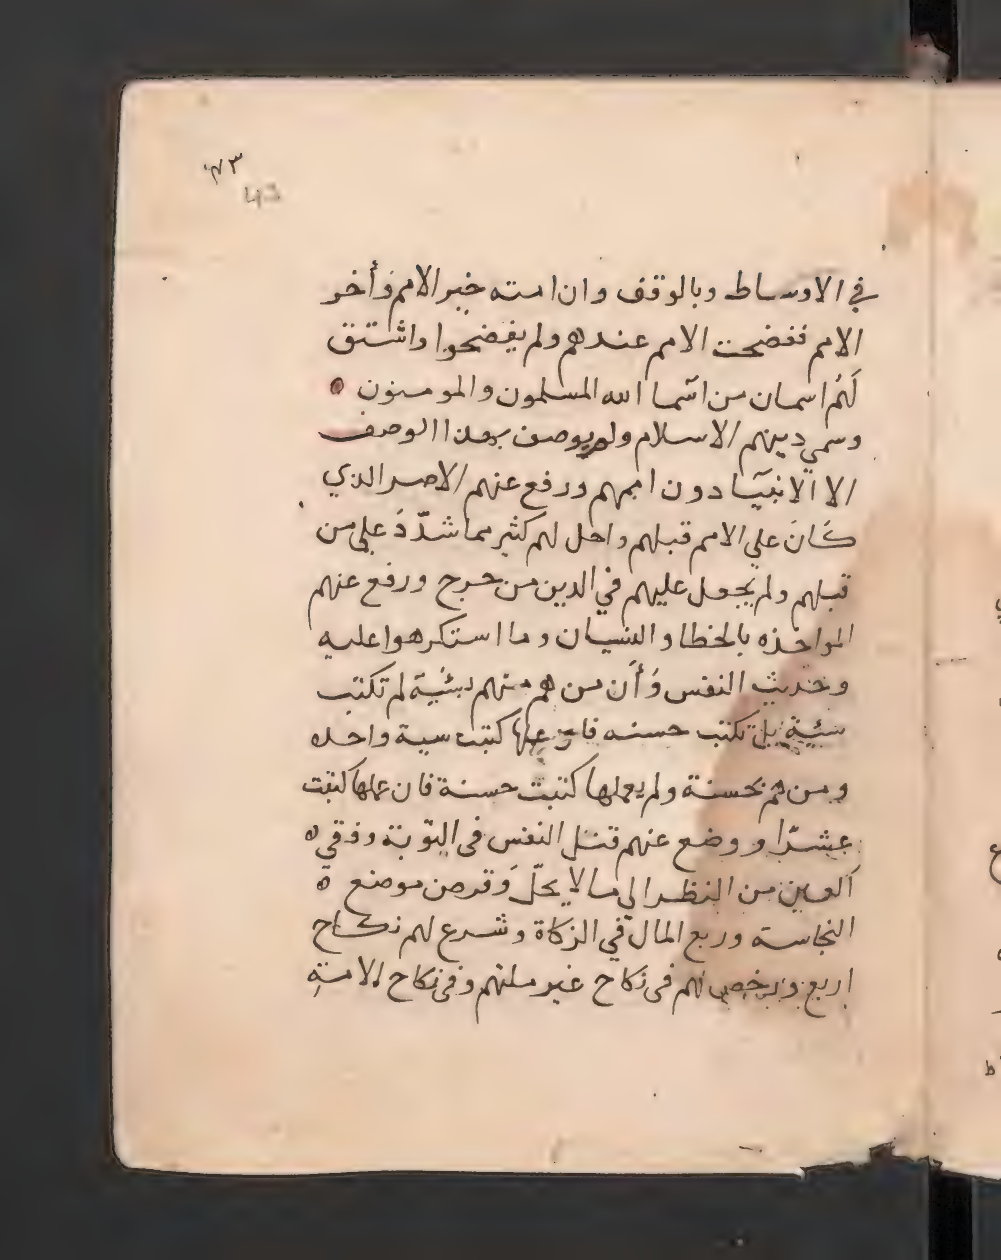 ٤٣
43
في الاوساط وبالوقف وان امته خير الامم وأخر
الامم ففضحت الامم عندهم ولم يفضحوا واشتق
لهُم اسمان من اسّما الله المسلمون والمومنون
وسمي دينهم الاسلام ولم يوصف بهذا الوصف
الا الانبيَا دون اممهم ورفع عنهم الاصر الذي
كَانَ علي الامم قبلهم واحل لهم كثير مما شدّدَ علي من
قبلهم ولم يجعل عليهم في الدين من حرج ورفع عنهم
المواخذه بالخطا والنسيان وما استكرهوا عليه
وحديث النفس وَأَن من هم منهم بسئية لم تكتب
سئية بل تكتب حسنه فان عملها كتبت سية واحده
ومن هم بحسنة ولم يعملها كتبت حسنة فان عملها كتبت
عشرًا ووضع عنهم قتل النفس في التوبة وفقي ه
العين من النظر الي ما لا يحلّ وَقرض موضع ة
النجاسة وربع المال في الزكاة وشرع لهم نكاح
اربع ورخص لهم في نكاح غير ملتهم وفي نكاح الامة